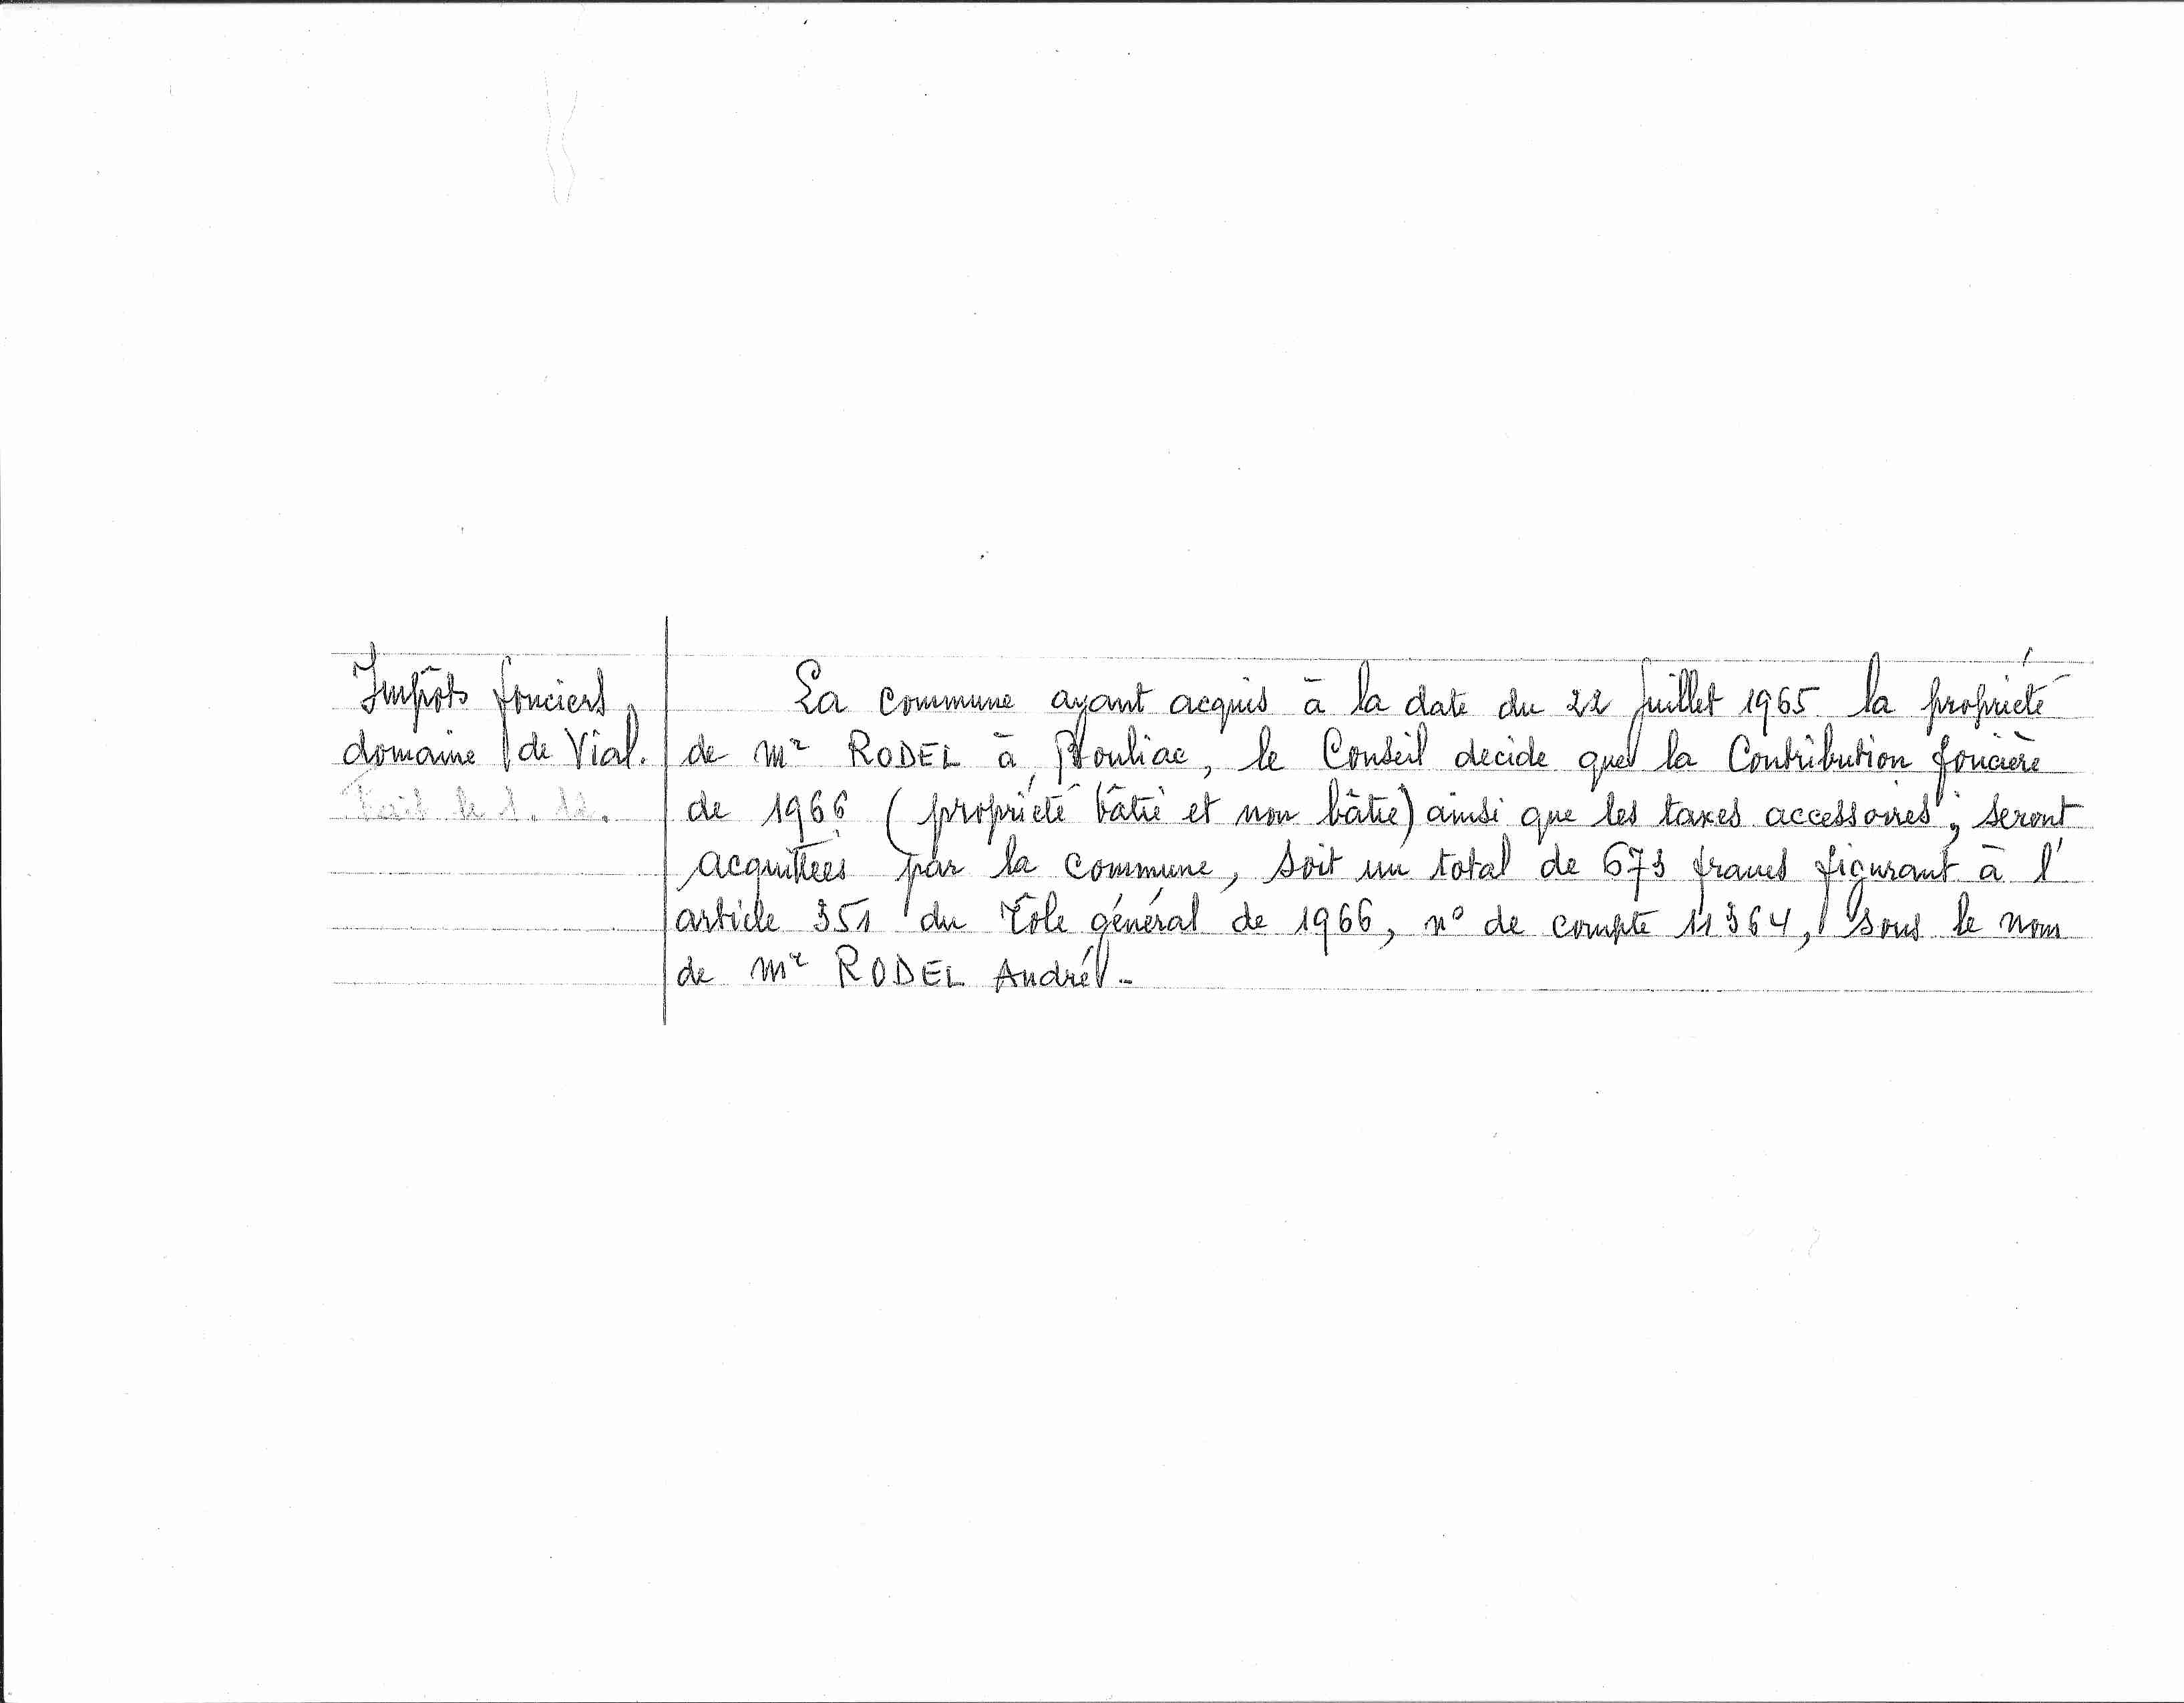 Impôts fonciers
domaine de Vial.
Fait le 1. 12.
La commune ayant acquis à la date du 22 Juillet 1965 la propriété
de Mr RODEL à, le Conseil decide que la Contribution foncière
de 1966 (propriété bâtie et non bâtie) ainsi que les taxes accessoires, seront
acquittées par la commune, soit un total de 673 francs figurant à l'
article 351 du rôle général de 1966, n° de compte 11364, sous le nom
de Mr RODEL André.-